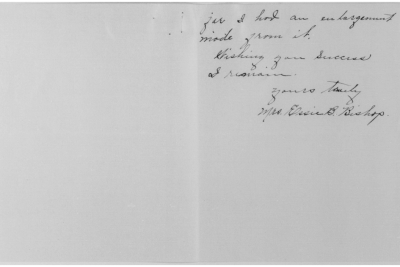 for I had an enlargement
made from it.
Wishing you success
I remain.
yours truly
Mrs. Essie B. Bishop.